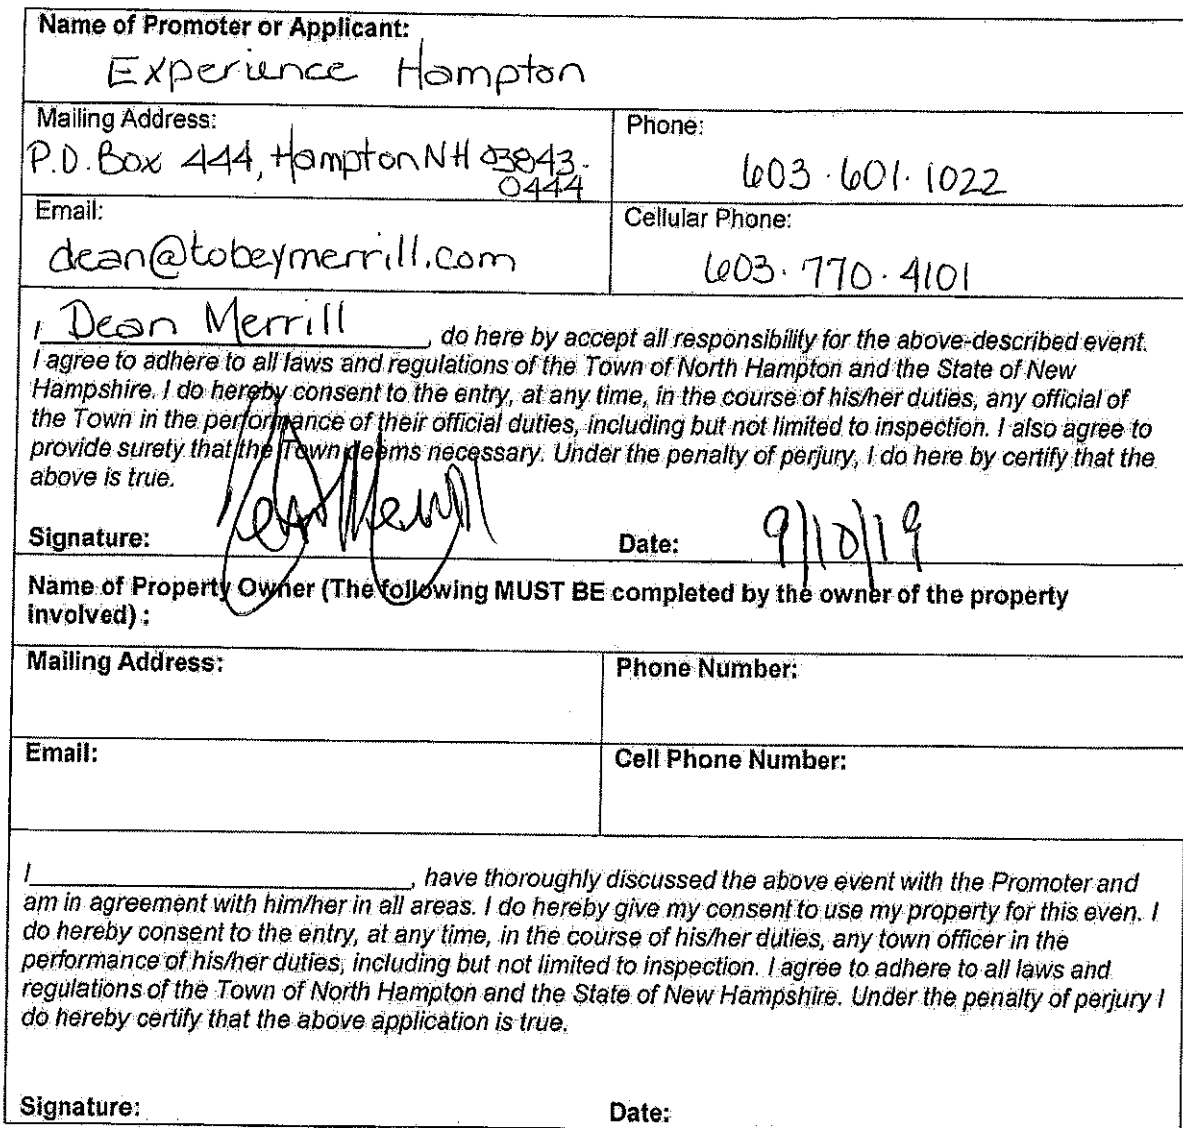 Name of Promoter or Applicant:
Experience Hampton
Mailing Address:
P.O. Box 444, Hampton NH 03843-
0444
Phone:
603.601.1022
Email:
dean@tobeymerrill.com
Cellular Phone:
603.770.4101
I Dean Merrill, do here by accept all responsibility for the above-described event.
I agree to adhere to all laws and regulations of the Town of North Hampton and the State of New
Hampshire. I do hereby consent to the entry, at any time, in the course of his/her duties, any official of
the Town in the performance of their official duties, including but not limited to inspection. I also agree to
provide surety that the Town deems necessary. Under the penalty of perjury, I do here by certify that the
above is true.
Signature: Dean Merrill Date: 9/10/19
Name of Property Owner (The following MUST BE completed by the owner of the property
involved) :
Mailing Address:
Phone Number:
Email:
Cell Phone Number:
I____________________, have thoroughly discussed the above event with the Promoter and
am in agreement with him/her in all areas. I do hereby give my consent to use my property for this even. I
do hereby consent to the entry, at any time, in the course of his/her duties, any town officer in the
performance of his/her duties, including but not limited to inspection. I agree to adhere to all laws and
regulations of the Town of North Hampton and the State of New Hampshire. Under the penalty of perjury I
do hereby certify that the above application is true.
Signature: Date: